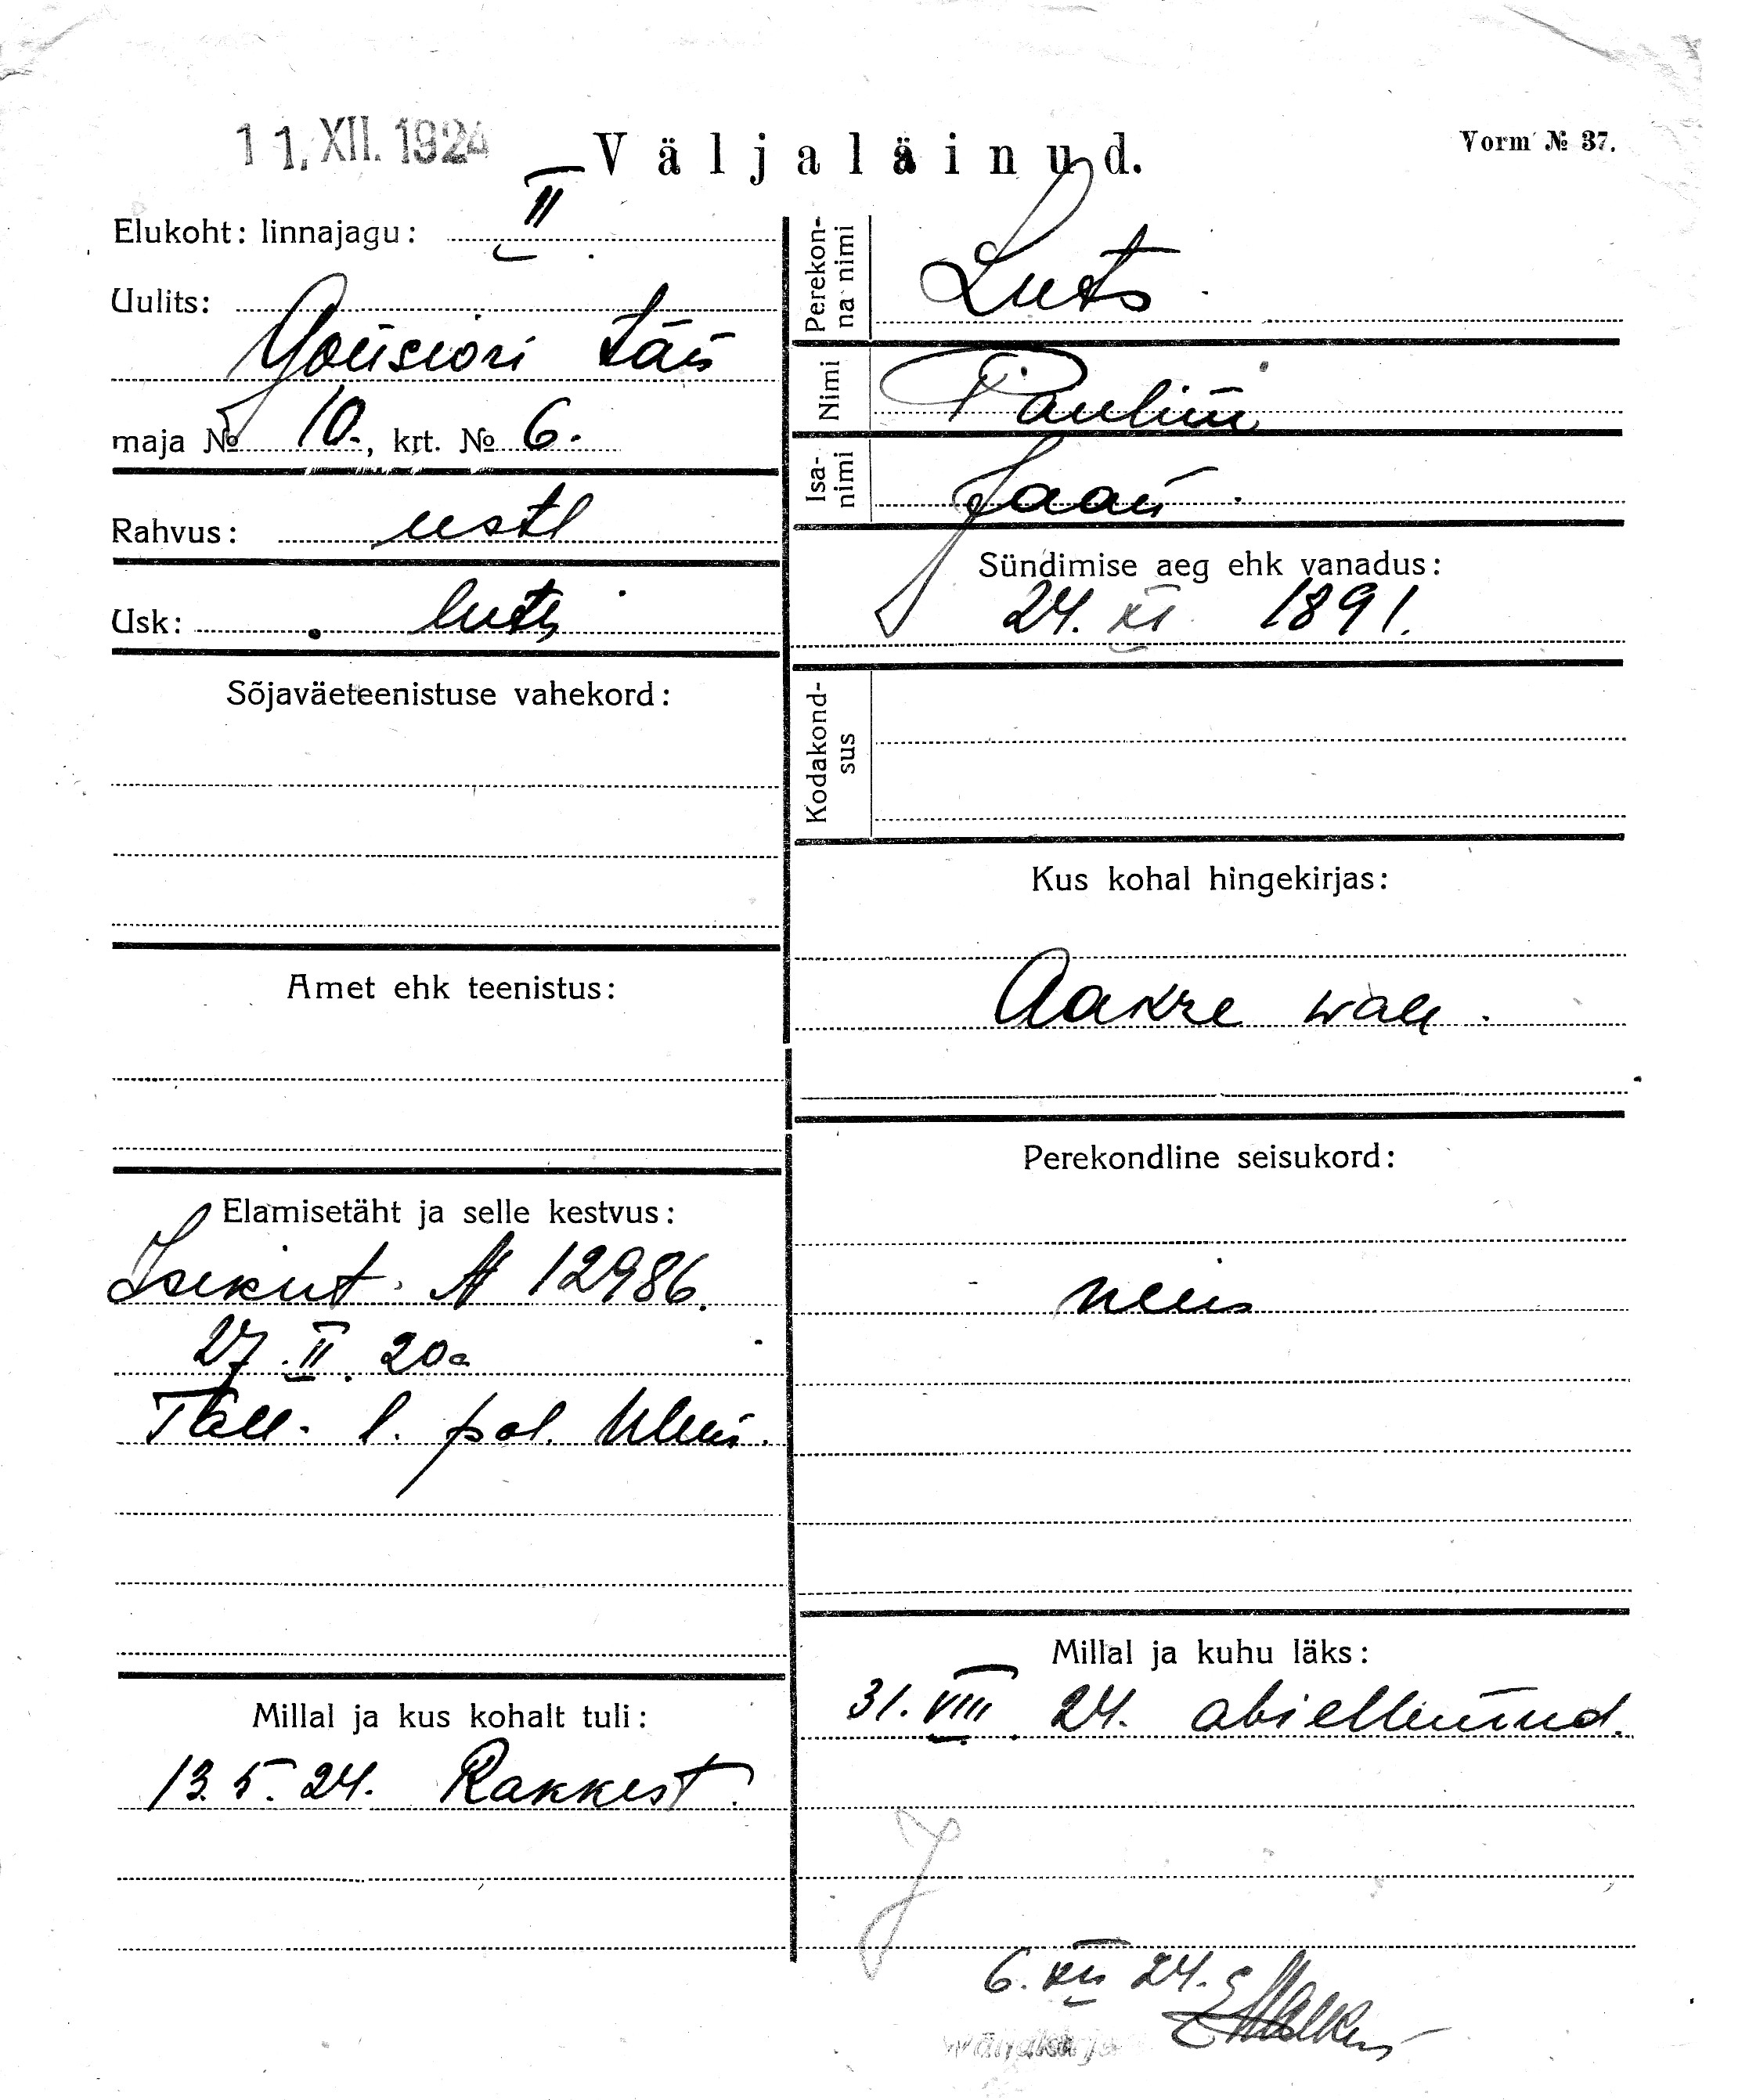 11. XII. 1924
Väljaläinud.
Vorm № 37.
Elukoht: linnajagu: II
Uulits:
Gonsiori tän
maja № 10., krt. № 6.
Rahvus: eestl
Usk: luts
Sõjaväeteenistuse vahekord:
Amet ehk teenistus:
Elamisetäht ja selle kestvus:
Isikut. № 12986.
27. II. 20a
Tall. l. pol. ülem.
Millal ja kus kohalt tuli:
13. 5. 24. Rakkest.
Perekonna nimi Luts
Nimi Pauline
Isanimi Jaan
Sündimise aeg ehk vanadus:
24. XI. 1891.
Kodakondsus
Kus kohal hingekirjas:
Aakre wall.
Perekondline seisukord:
neiu
Millal ja kuhu läks:
31. VIII 24. abiellunud.
6. XII 24.